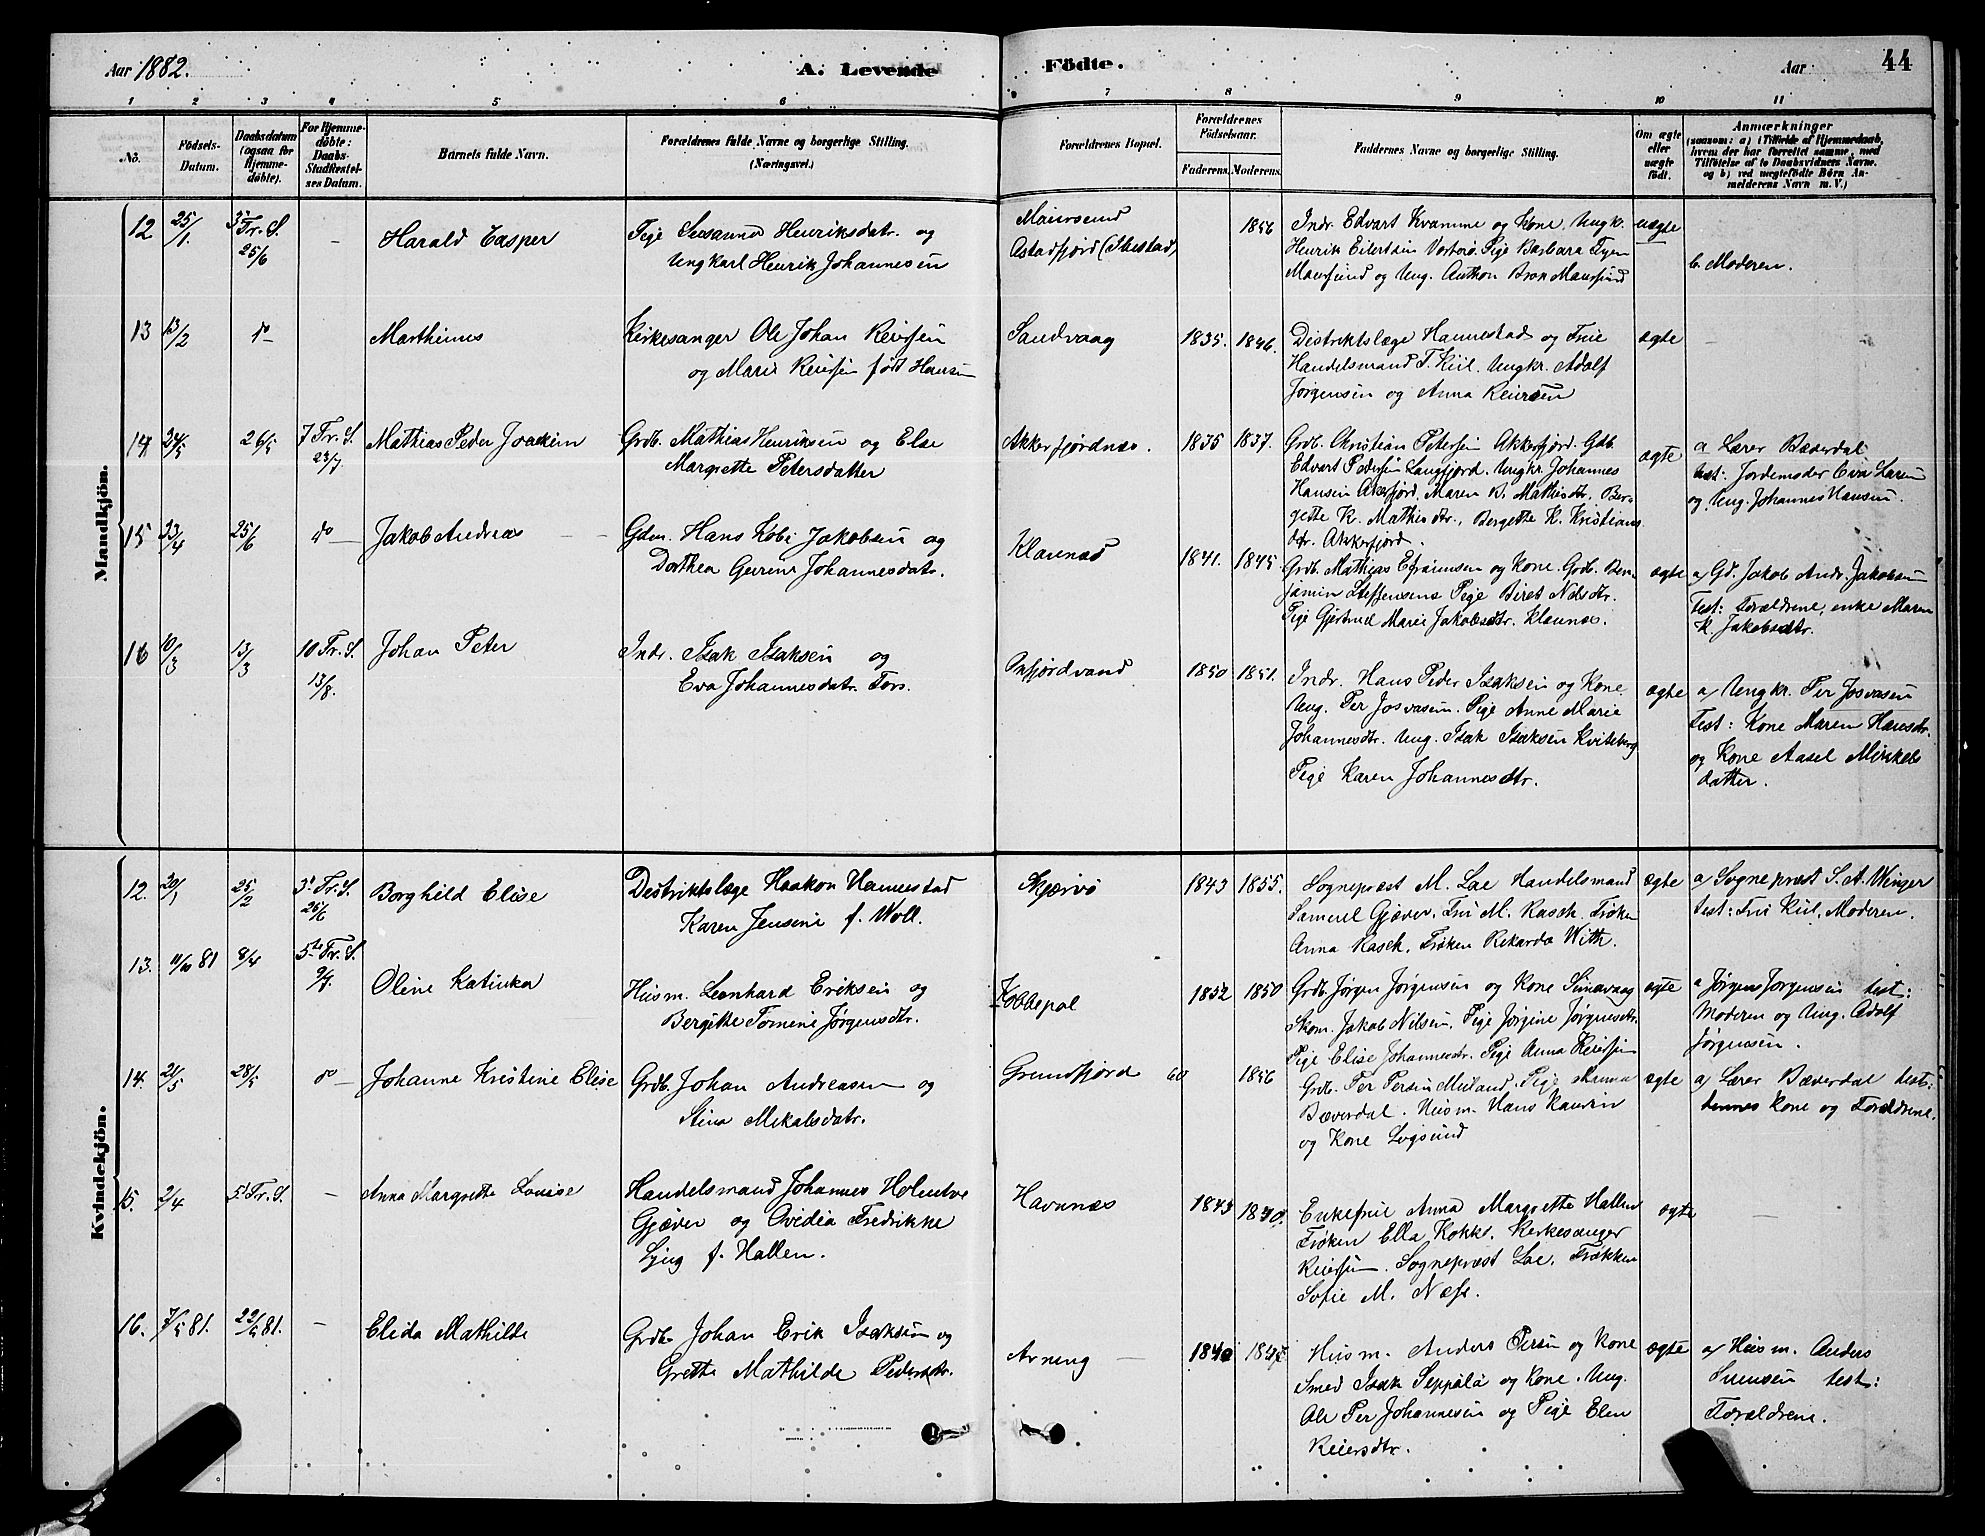 Aar 1882.
A. Levende Födte.
Aar
44
1 2 3 4 5 6 7 8 9 10 11
No.
Födsels-Datum.
Daabsdatum (ogsaa for Hjemme-döbte).
For Hjemme-döbte: Daabs-Stadfæstel-ses Datum.
Barnets fulde Navn.
Forældrenes fulde Navne og borgerlige Stilling. (Næringsvei.)
Forældrenes Bopæl.
Forældrenes Födselsaar.
Faderens. Moderens.
Faddernes Navne og borgerlige Stilling.
Om ægte eller uægte födt.
Anmærkninger
(saasom: a) i Tilfælde af Hjemmedaab, hvem der har forrettet samme, med Tilföielse af to Daabsvidners Navne, og b) ved uægtefödte Börn An-melderens Navn m. V.)
Mandkjön.
12 25/1 3' Tr. S. 25/6 – Harald Casper
Pige Susanna Henriksdatr. og
Ungkarl Henrik Johannesen
Maursund
Astadfjord (Ibestad)
1856
Indr. Edvart Kvamme og Kone, Ungk.
Henrik Eilertsen Vorterø. Pige Barbara
Maursund og Ung. Anthon Brox Maursund
uægte
b. Moderen.
13 13/2 do – Marthinus
Kirkesanger Ole Johan Reiersen
og Marie Reiersen født Hansen
Sandvaag
1835. 1846.
Distriktslæge Hannestad og Frue
Handelsmand T. Kiil. Ungkr. Adolf
Jørgensen og Anna Reiersen
ægte –
14 24/5 26/5 7 Tr. S. 23/7 Mathias Peder Joackim
Grdb. Mathias Henriksen og Else
Margrette Petersdatter
Akkerfjordnæs.
1835 1837.
Grdb. Christian Petersen Akkerfjord. Gdb.
Edvart Pedersen Langfjord. Ungkr. Johannes
Hansen Akerfjord. Maren B. Mathisdtr. Ber-
gette K. Mathisdtr., Bergette K. Kristians
dtr. Akkerfjord.
ægte
a Lærer Bæverdal
test: Jordemoder Eva Larsen
og Ung. Johannes Hansen.
15 23/4 25/6 do – Jakob Andreas –
Gdm. Hans Kobi Jakobsen og
Dorthea Gurine Johannesdatr.
Klaunæs
1841. 1845
Grdb. Mathias Efraimsen og Kone. Grdb. Ben-
jamin Steffensens Pige Biret Nilsdtr.
Pige Gjertrud Marie Jakobsdtr. Klaunæs.
ægte
a/ Gd. Jakob Andr. Jakobsen
Test: Forældrene, enke Maren
K. Jakobsdtr.
16 10/3 13/3 10 Tr. S. 13/8. Johan Peter
Indr. Isak Isaksen og
Eva Johannesdatr. Fors.
Oxfjordvand
1850 1851.
Indr. Hans Peder Isaksen og Kone
Ung. Per Josvasen. Pige Anne Marie
Johannesdtr. Ung. Isak Isaksen Kviteberg
Pige Karen Johannesdtr.
ægte
a/ Ungkr. Per Josvasen
Test: Kone Maren Hansdtr.
og Kone Aasel Mikkels
datter.
Kvindekjön.
12. 20/1 25/2 3' Tr. S. 25/6 Borghild Elise
Distriktslæge Haakon Hannestad
Karen Jensine f. Woll.
Skjærvø
1843 1855.
Sognepræst M. Lae Handelsmand
Samuel Gjæver. Fru M. Rasch. Frøken
Anna Rasch. Frøken Rikarda With.
ægte
a/ Sognepræst S. A. Winger
test: Fru Kiil, Moderen.
13. 11/10 81 8/4 5te Tr. S. 9/7. Oline Katinka
Husm. Leonhard Eriksen og
Bergitte Tomine Jørgensdtr.
Kobbepol
1852 1850
Grdb. Jørgen Jørgensen og Kone
Skom. Jakob Nilsen, Pige Jørgine Jørgensdtr.
Pige Elise Johannesdtr. Pige Anna Reiersen
ægte
a Jørgen Jorgensen test:
Moderen og Ung. Adolf
Jørgensen.
14. 21/5 28/5 do – Johanne Kristine Elise
Grdb. Johan Andreasen og
Stina Mikalsdatr.
Grundfjord
60 1856
Grdb. Per Persen Meiland. Pige
Bæverdal. Husm. Hans Kaurin
og Kone Løgsund
ægte
a/ Lærer Bæverdal test:
dennes Kone og Forældrene.
15. 2/4 5' Tr. S. – Anna Margrette Louise
Handelsmand Johannes Holmbve
Gjæver og Ovidia Fredrikke
Lyng f. Hallen.
Havnnæs
1843 1840.
Enkefrue Anna Margrette Hallen
Frøken Ella Kokks. Kirkesanger
Reiersen. Sognepræst Lae. Frøkken
Sofie M. Næss.
ægte –
16. 7/5 81. 22/5 81. – Elida Mathilde
Grdb. Johan Erik Isaksen og
Grette Mathilde Pedersdtr.
Arneng –
1840 1847
Husm. Anders Persen og Kone
Smed Isak Seppälä og Kone. Ung.
Ole Per Johannesen og Pige Elen
Reiersdtr.
ægte
a/ Husm. Anders
test:
Forældrene.